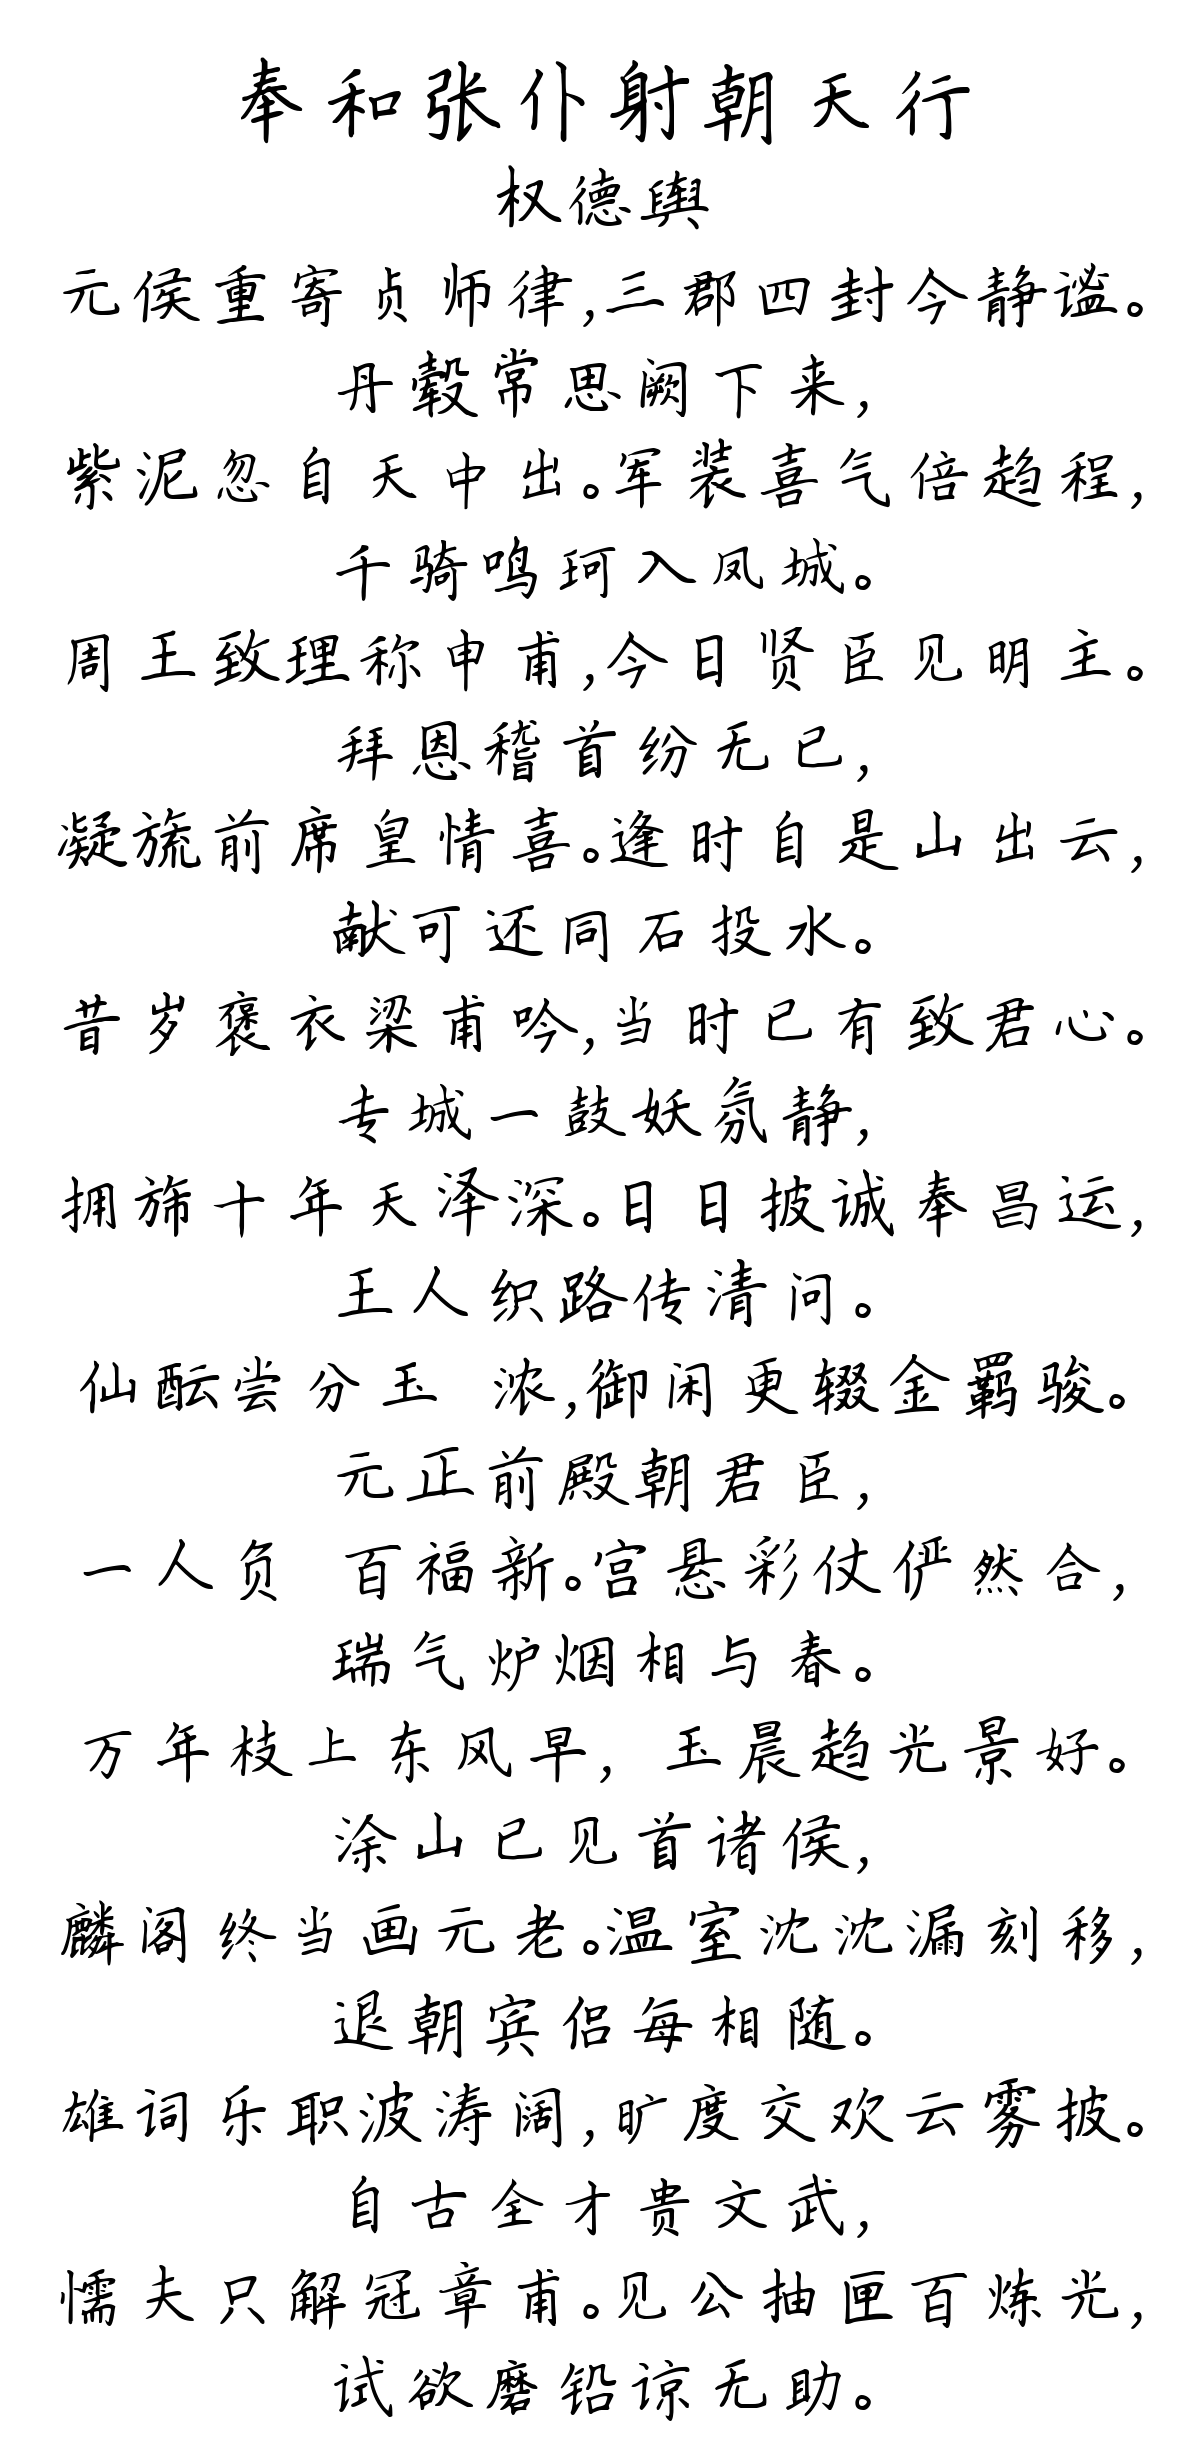 奉和张仆射朝天行
权德舆
元侯重寄贞师律,三郡四封今静谧。
丹毂常思阙下来,
紫泥忽自天中出。军装喜气倍趋程,
千骑鸣珂入凤城。
周王致理称申甫,今日贤臣见明主。
拜恩稽首纷无已,
凝旒前席皇情喜。逢时自是山出云,
献可还同石投水。
昔岁褒衣梁甫吟,当时已有致君心。
专城一鼓妖氛静,
拥旆十年天泽深。日日披诚奉昌运,
王人织路传清问。
仙酝尝分玉 浓,御闲更辍金羁骏。
元正前殿朝君臣,
一人负 百福新。宫悬彩仗俨然合,
瑞气炉烟相与春。
万年枝上东风早,玉晨趋光景好。
涂山已见首诸侯,
麟阁终当画元老。温室沈沈漏刻移,
退朝宾侣每相随。
雄词乐职波涛阔,旷度交欢云雾披。
自古全才贵文武,
懦夫只解冠章甫。见公抽匣百炼光,
试欲磨铅谅无助。